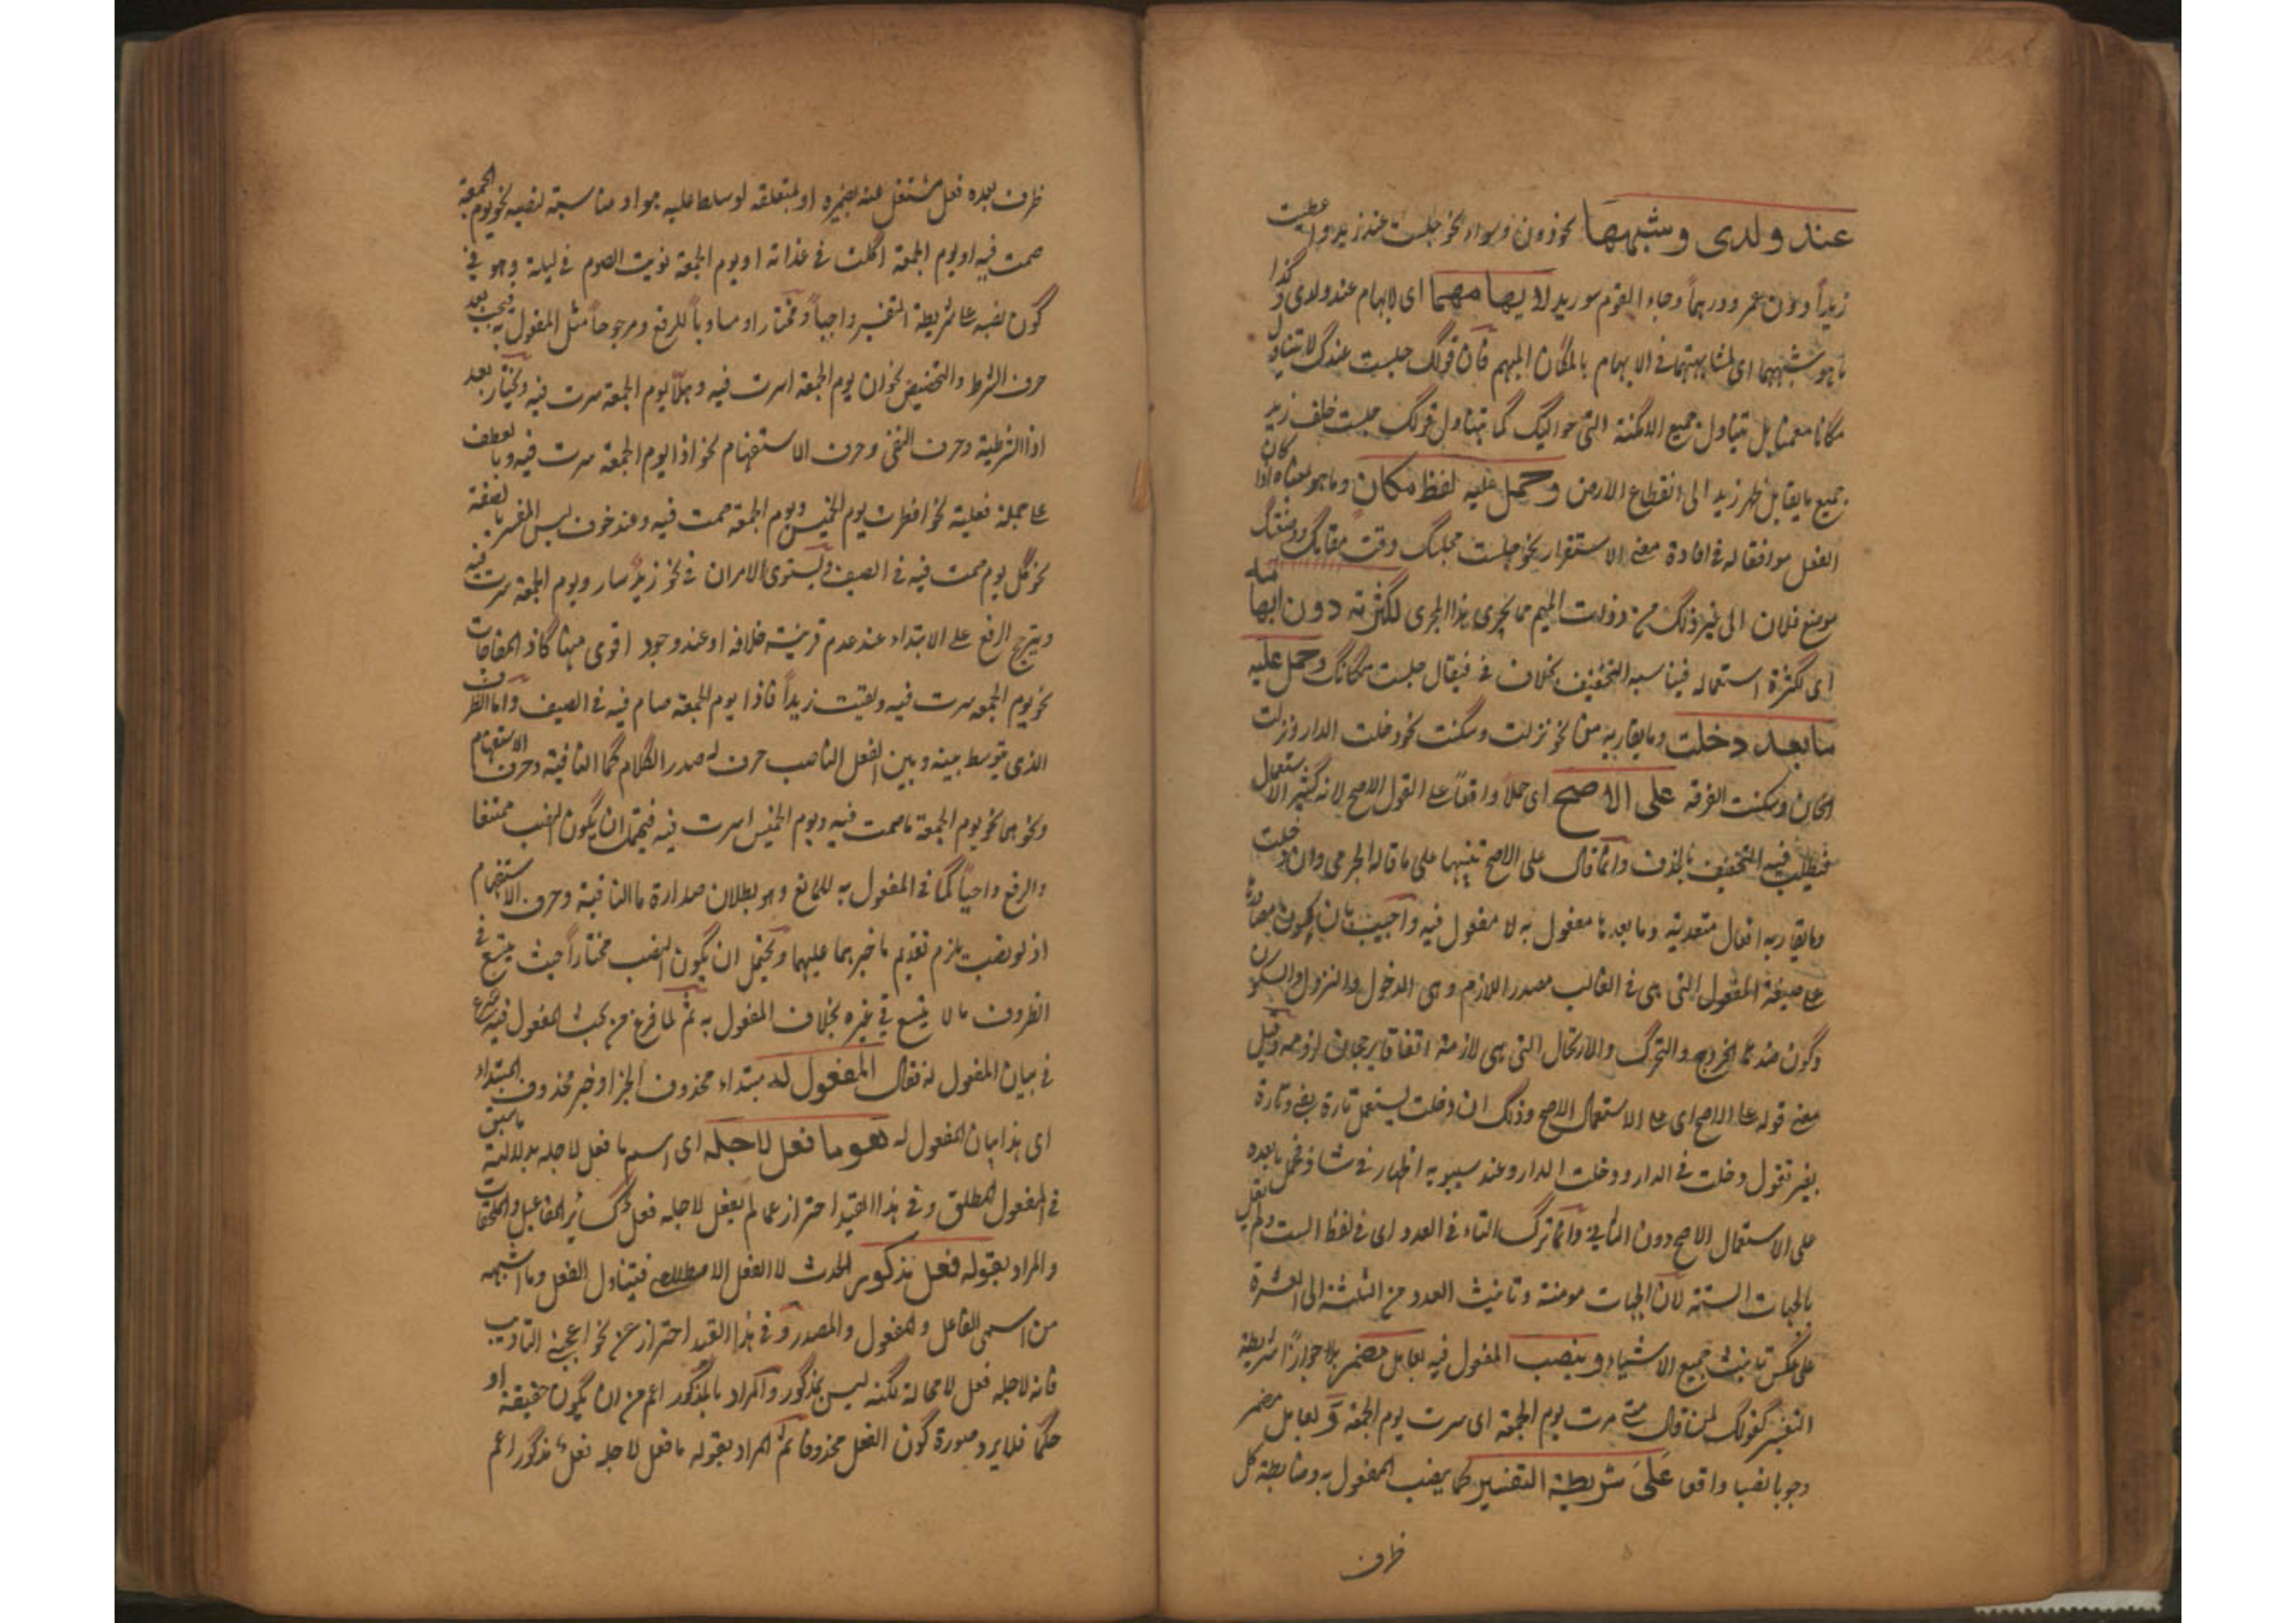 عند ولدى وشبهها نحو دون وسواء نحو جلست عند زيد واعطيت
زيداً دون عمرو درهماً وجاء القوم سوى زيد لابهامهما اى لابهام عند ولدى وكذا
ما هو شبههما اى لمشابهتهما فى الابهام بالمكان المبهم فان قولك جلست عندك لا يتناول
مكانا معينا بل يتناول جميع الامكنة التى حواليك كما يتناول قولك جلست خلف زيد
جميع ما يقابل ظهر زيد الى انقطاع الارض وحمل عليه لفظ مكان وما هو بمعناه اذا كان
الفعل موافقا له فى افادة معنى الاستقرار نحو جلست مجلسك وقمت مقامك ووضعتك
موضع فلان الى غير ذلك من ذوات الميم مما يجرى هذا المجرى لكثرته دون ابهامه
اى لكثرة استعماله فيناسبه التخفيف بحذف فى فيقال جلست مكانك وحمل عليه
ما بعد دخلت وما يقاربه من نحو نزلت وسكنت نحو دخلت الدار ونزلت
الخان وسكنت الغرفة على الاصح اى حملاً واقعاً على القول الاصح لانه كثير الاستعمال
فيطلب فيه التخفيف بالحذف وانما قال على الاصح تنبيها على ما قاله الجرمى وان دخلت
وما يقاربه افعال متعدية وما بعدها مفعول به لا مفعول فيه واجيب بان كون مصادرها
على صيغة الفعول التى هى فى الغالب مصدر اللازم وهى الدخول والنزول والسكون
وكون ضدها الخروج والتحرك والارتحال التى هى لازمة اتفاقا يرجحان لزومه وقيل
معنى قوله على الاصح اى على الاستعمال الاصح وذلك ان دخلت يستعمل تارة بفى وتارة
بغير تقول دخلت فى الدار ودخلت الدار وعند سيبويه اظهار فى شاذ فحمل ما بعده
على الاستعمال الاصح دون وانما ترك التاء فى العدد اى فى لفظ الست ولم يقل
بالجهات الستة لان الجهات مونثة وتانيث العدد من الثلثة الى العشرة
على عكس تانيث جميع الاشياء وينصب المفعول فيه بعامل مضمر بلا شريطة
التفسير كقولك لمن قال متى سرت يوم الجمعة اى سرت يوم الجمعة وبعامل مضمر
وجوبا نصبا واقعا على شريطة التفسير كما ينصب المفعول به وضابطة كل
ظرف
ظرف بعده فعل مشتغل عنه بضميره او بمتعلقه لو سلط عليه هو او مناسبه لنصبه نحو يوم الجمعة
صمت فيه او يوم الجمعة اكلت فى غذائه او يوم الجمعة نويت الصوم فى ليلة وهو فى
كون نصبه على شريطة التفسير واجباً ومختارا ومساوياً للرفع ومرجوحاً مثل المفعول به فيجب بعد
حرف الشرط والتحضيض نحو ان يوم الجمعة سرت فيه وهلّا يوم الجمعة سرت فيه ويختار بعد
اذا الشرطية وحرف النفى وحرف الاستفهام نحو اذا يوم الجمعة سرت فيه وبالعطف
على جملة فعلية نحو افطرت يوم الخميس ويوم الجمعة صمت فيه وعند خوف لبس المفسر بالصفة
نحو كل يوم صمت فيه فى الصيف ويستوى الامران فى نحو زيد سار ويوم الجمعة سرت فيه
ويترجح الرفع على الابتداء عند عدم قرينة خلافه او عند وجود اقوى منها كاذا المفاجات
نحو يوم الجمعة سرت فيه ولقيت زيداً فاذا يوم الجمعة صام فيه فى الصيف واما الظرف
الذى يتوسط بينه وبين الفعل الناصب حرف له صدر الكلام كما النافية وحرف الاستفهام
ونحوهما نحو يوم الجمعة ما صمت فيه ويوم الخميس اسرت فيه فيحتمل ان يكون النصب ممتنعا
والرفع واجباً كما فى المفعول به للمانع وهو بطلان صدارة ما النافية وحرف الاستفهام
اذ لو نصبت يلزم تقديم ما خبرهما عليهما ويحتمل ان يكون النصب مختاراً حيث يتسع فى
الظروف ما لا يتسع فى غيره بخلاف المفعول به ثم لما فرغ من بحث المفعول فيه شرع
فى بيان المفعول له فقال المفعول له مبتداء محذوف الخبر او خبر محذوف المبتداء
اى هذا بيان المفعول له هو ما فعل لاجله اى اسم ما فعل لاجله بدلالة ما سبق
فى المفعول المطلق وفى هذا القيد احتراز عما لم يفعل لاجله فعل كسائر المفاعيل والملحقات
والمراد بقوله فعل مذكور الحدث لا الفعل الاصطلاحى فيتناول الفعل وما اشبهه
من اسمى الفاعل والمفعول والمصدر وفى هذا القيد احتراز عن نحو اعجبنى التاديب
فانه لاجله فعل لا محالة لكنه ليس بمذكور والمراد بالمذكور اعم من ان يكون حقيقة او
حكما فلا يرد صورة كون الفعل محذوفا ثم المراد بقوله ما فعل لاجله فعل مذكور اعم